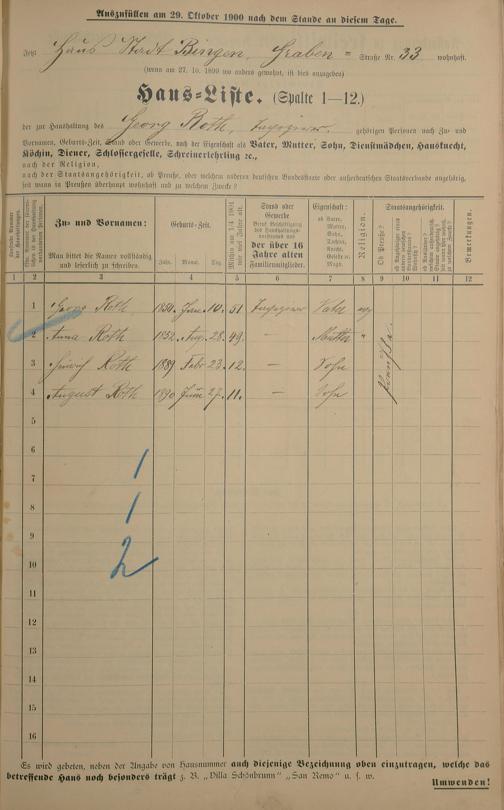 Auszufüllen am 29. Oktober 1900 nach dem Stande an diesem Tage.
Jetzt Haus Stadt Bingen, Graben = Straße Nr. 33 wohnhaft.
(wenn am 27. 10. 1899 wo anders gewohnt, ist dies anzugeben)
Haus=Liste. (Spalte 1—12.)
der zur Haushaltung des Georg Roth, Tagiöner. gehörigen Personen nach Zu- und
Vornamen, Geburts-Zeit, Stand oder Gewerbe, nach der Eigenschaft als Vater, Mutter, Sohn, Dienstmädchen, Hausknecht,
Köchin, Diener, Schlossergeselle, Schreinerlehrling ꝛc.,
nach der Religion,
nach der Staatsangehörigkeit, ob Preuße, oder welchem anderen deutschen Staate oder außerdeutschen Staatsverbande angehörig,
seit wann in Preußen überhaupt wohnhaft und zu welchem Zweck?
Zu= und Vornamen:
Man bittet die Namen vollständig
und leserlich zu schreiben.
Geburts-Zeit.
Jahr. Monat. Tag.
Mithin am 1/4 1901
wie viel Jahre alt.
Stand oder
Gewerbe
der über 16
Jahre alten
Familienmitglieder.
Eigenschaft:
ob Vater,
Mutter,
Sohn,
Tochter,
Knecht,
Geselle ꝛc.
Magd.
Religion.
Staatsangehörigkeit.
Ob Preuße?
Bemerkungen.
1 2 3 4 5 6 7 8 9 10 11 12
1 Georg Roth 1850 10. 51 Vater
2 Anna Roth 1852 Aug. 28. 49. — Mutter "
3 Heinrich Roth 1889 Febr 23. 12. — Sohn
4 August Roth 1890 Juni 27. 11. — Sohn
5
6
7
8
9
10
11
12
13
14
15
16
1
1
2
Es wird gebeten, neben der Angabe von Hausnummer auch diejenige Bezeichnung oben einzutragen, welche das
betreffende Haus noch besonders trägt z. B. „Villa Schönbrunn" „San Remo" u. s. w.
Umwenden!